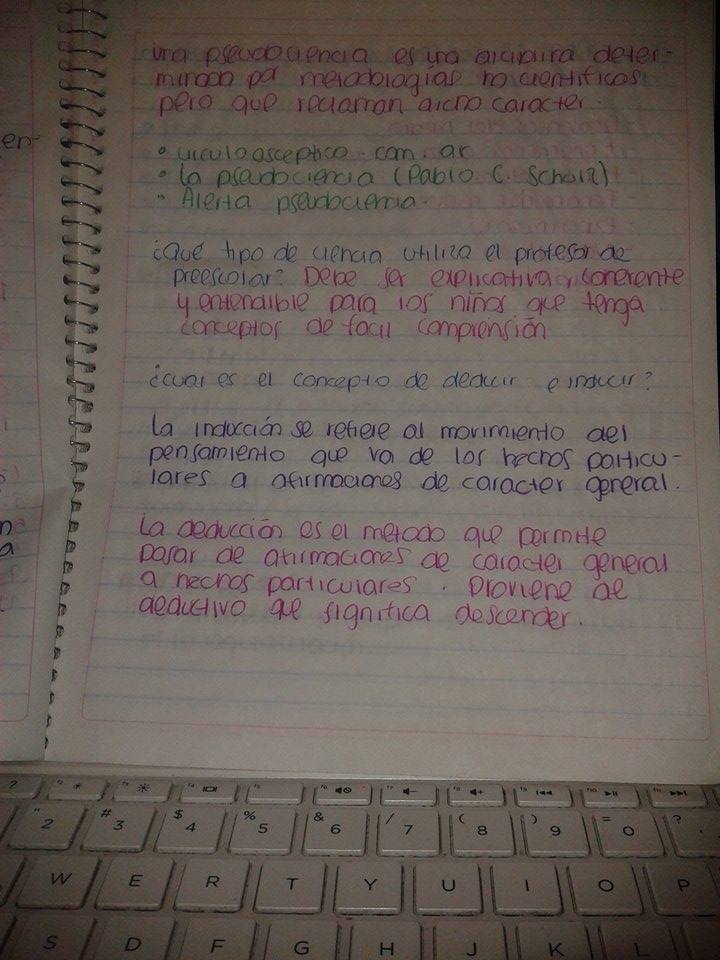 Una pseudociencia es una disciplina deter-
minada por metodologías no científicas
pero que reclaman dicho caracter.
• circuloesceptico.com.ar
• La pseudociencia (Pablo C. Scholz)
• Alerta pseudociencia.
¿Qué tipo de ciencia utiliza el profesor de
preescolar? Debe ser explicativa, coherente
y entendible para los niños que tenga
conceptos de facil comprensión
¿cual es el concepto de deducir e inducir?
La inducción se refiere al movimiento del
pensamiento que va de los hechos particu-
lares a afirmaciones de caracter general.
La deducción es el metodo que permite
pasar de afirmaciones de caracter general
a hechos particulares. Proviene de
deductivo que significa descender.
en-
" 2 # 3 $ 4 % 5 & 6 / 7 ( 8 ) 9 = 0 ?
W E R T Y U I O P
S D F G H J K L